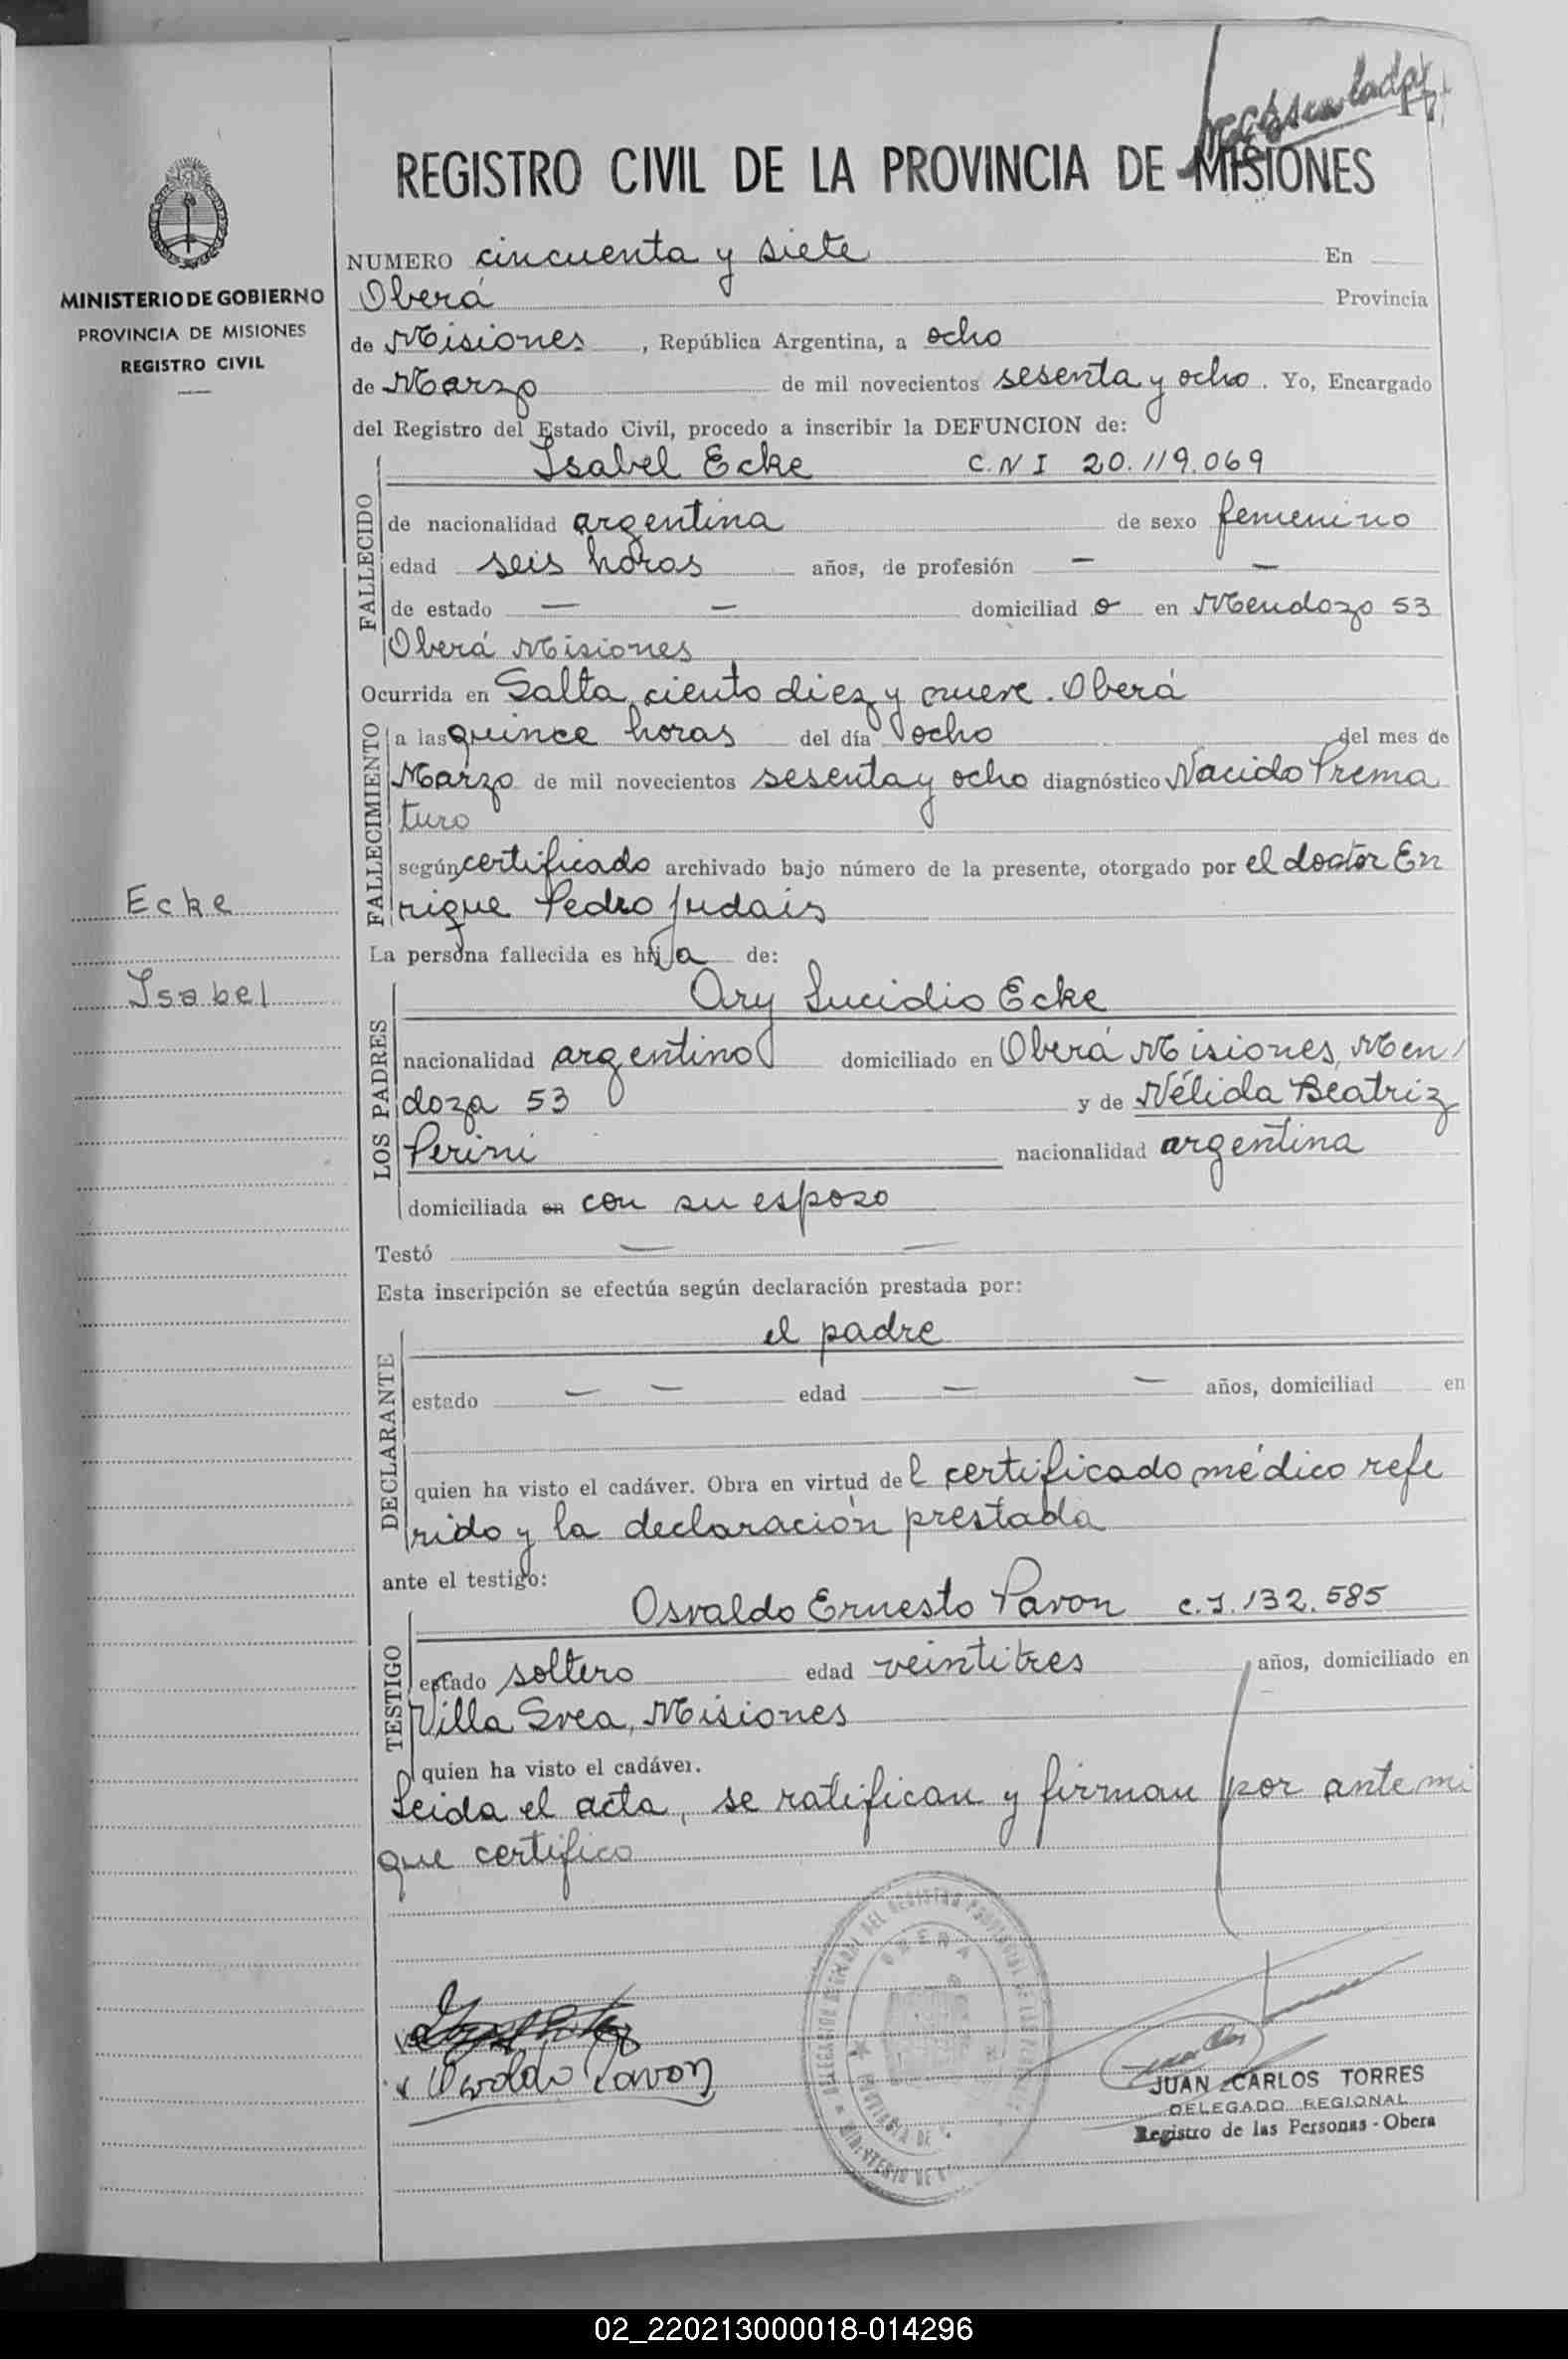 REGISTRO CIVIL DE LA PROVINCIA DE MISIONES
MINISTERIO DE GOBIERNO
PROVINCIA DE MISIONES
REGISTRO CIVIL
NUMERO cincuenta y siete En
Oberá Provincia
de Misiones, República Argentina, a ocho
de Marzo de mil novecientos sesenta y ocho. Yo, Encargado
del Registro del Estado Civil, procedo a inscribir la DEFUNCION de:
FALLECIDO
Isabel Ecke C.N I 20.119.069
de nacionalidad argentina de sexo femenino
edad seis horas años, de profesión — —
de estado — — domiciliad o en Mendoza 53
Oberá Misiones
Ocurrida en Salta, ciento diez y nueve. Oberá
FALLECIMIENTO
a las quince horas del día ocho del mes de
Marzo de mil novecientos sesenta y ocho diagnóstico Nacido Prema
turo
según certificado archivado bajo número de la presente, otorgado por el doctor En
rique Pedro Judais
La persona fallecida es hija de:
Ecke
Isabel
LOS PADRES
Ary Lucidio Ecke
nacionalidad argentino domiciliado en Oberá Misiones, Men
doza 53 y de Nélida Beatriz
Perini nacionalidad argentina
domiciliada en con su esposo
Testó — —
Esta inscripción se efectúa según declaración prestada por:
DECLARANTE
el padre
estado — — edad — — años, domiciliad en
quien ha visto el cadáver. Obra en virtud del certificado médico refe
rido y la declaración prestada
ante el testigo:
TESTIGO
Osvaldo Ernesto Pavon c.I. 132.585
estado soltero edad veintitres años, domiciliado en
Villa Svea, Misiones
quien ha visto el cadáver.
Leida el acta, se ratifican y firman por ante mi
que certifico
Osvaldo Pavon
OBERA
JUAN CARLOS TORRES
DELEGADO REGIONAL
Registro de las Personas - Obera
02_220213000018-014296